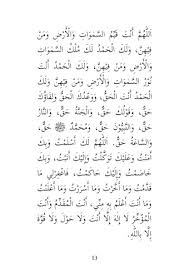 اللَّهُمَّ أَنْتَ قَيِّمُ السَّمَوَاتِ وَالْأَرْضِ وَمَنْ
فِيهِنَّ، وَلَكَ الْحَمْدُ لَكَ مُلْكُ السَّمَوَاتِ
وَالْأَرْضِ وَمَنْ فِيهِنَّ، وَلَكَ الْحَمْدُ أَنْتَ
نُورُ السَّمَوَاتِ وَالْأَرْضِ وَمَنْ فِيهِنَّ وَلَكَ
الْحَمْدُ أَنْتَ الْحَقُّ، وَوَعْدُكَ الْحَقُّ وَلِقَاؤُكَ
حَقٌّ، وَقَوْلُكَ حَقٌّ، وَالْجَنَّةُ حَقٌّ، وَالنَّارُ
حَقٌّ، وَالنَّبِيُّونَ حَقٌّ، وَمُحَمَّدٌ ﷺ حَقٌّ،
وَالسَّاعَةُ حَقٌّ. اللَّهُمَّ لَكَ أَسْلَمْتُ، وَبِكَ
آمَنْتُ وَعَلَيْكَ تَوَكَّلْتُ وَإِلَيْكَ أَنَبْتُ، وَبِكَ
خَاصَمْتُ وَإِلَيْكَ حَاكَمْتُ، فَاغْفِرْلِي مَا
قَدَّمْتُ وَمَا أَخَّرْتُ وَمَا أَسْرَرْتُ وَمَا أَعْلَنْتُ
وَمَا أَنْتَ أَعْلَمُ بِهِ مِنِّي، أَنْتَ الْمُقَدِّمُ وَأَنْتَ
الْمُؤَخِّرُ لَا إِلَهَ إِلَّا أَنْتَ وَلَا حَوْلَ وَلَا قُوَّةَ
إِلَّا بِاللهِ.
13